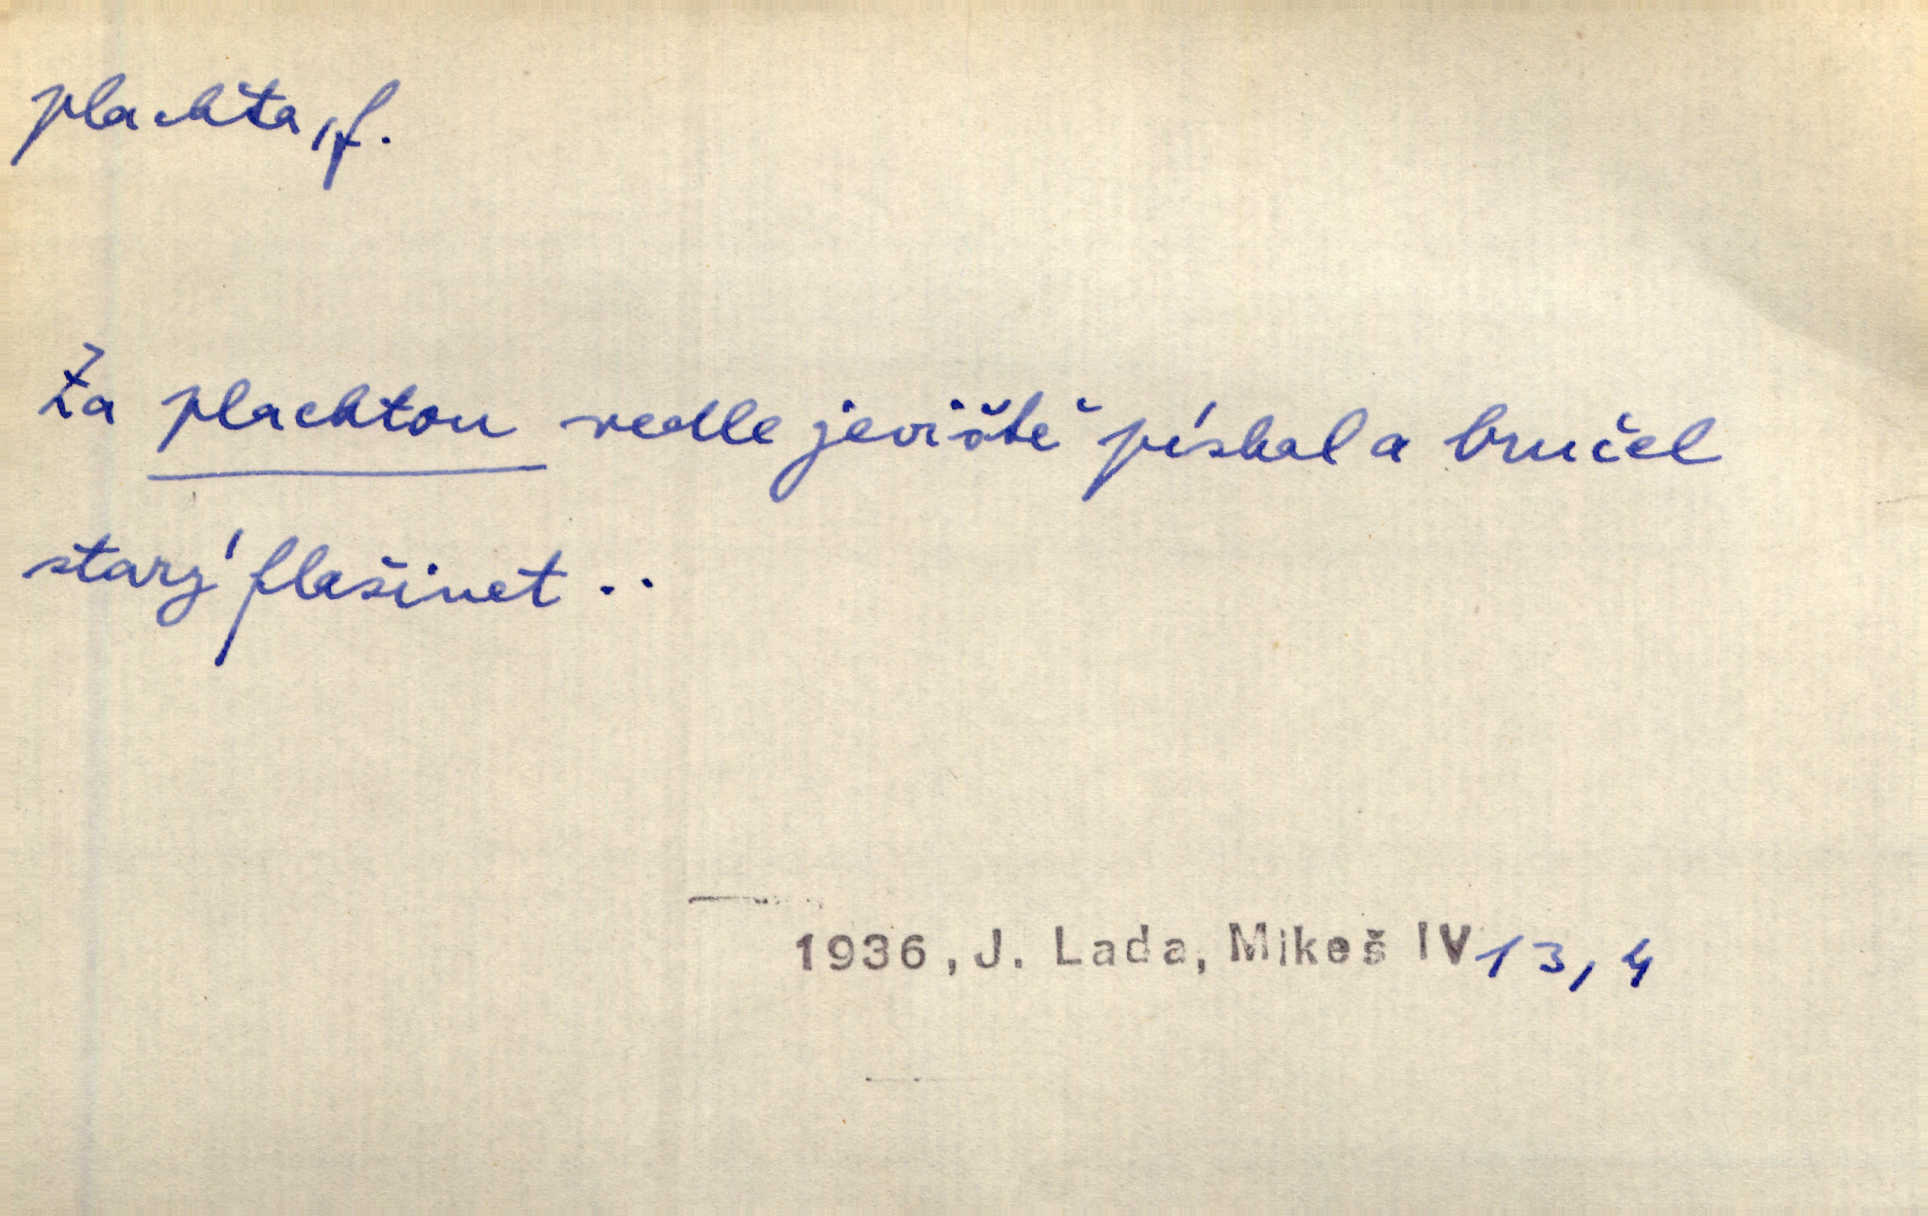 plachta, f.
Za plachtou vedle jeviště pískal a bručel
starý flašinet ..
1936, J. Lada, Mikeš IV 13, 4